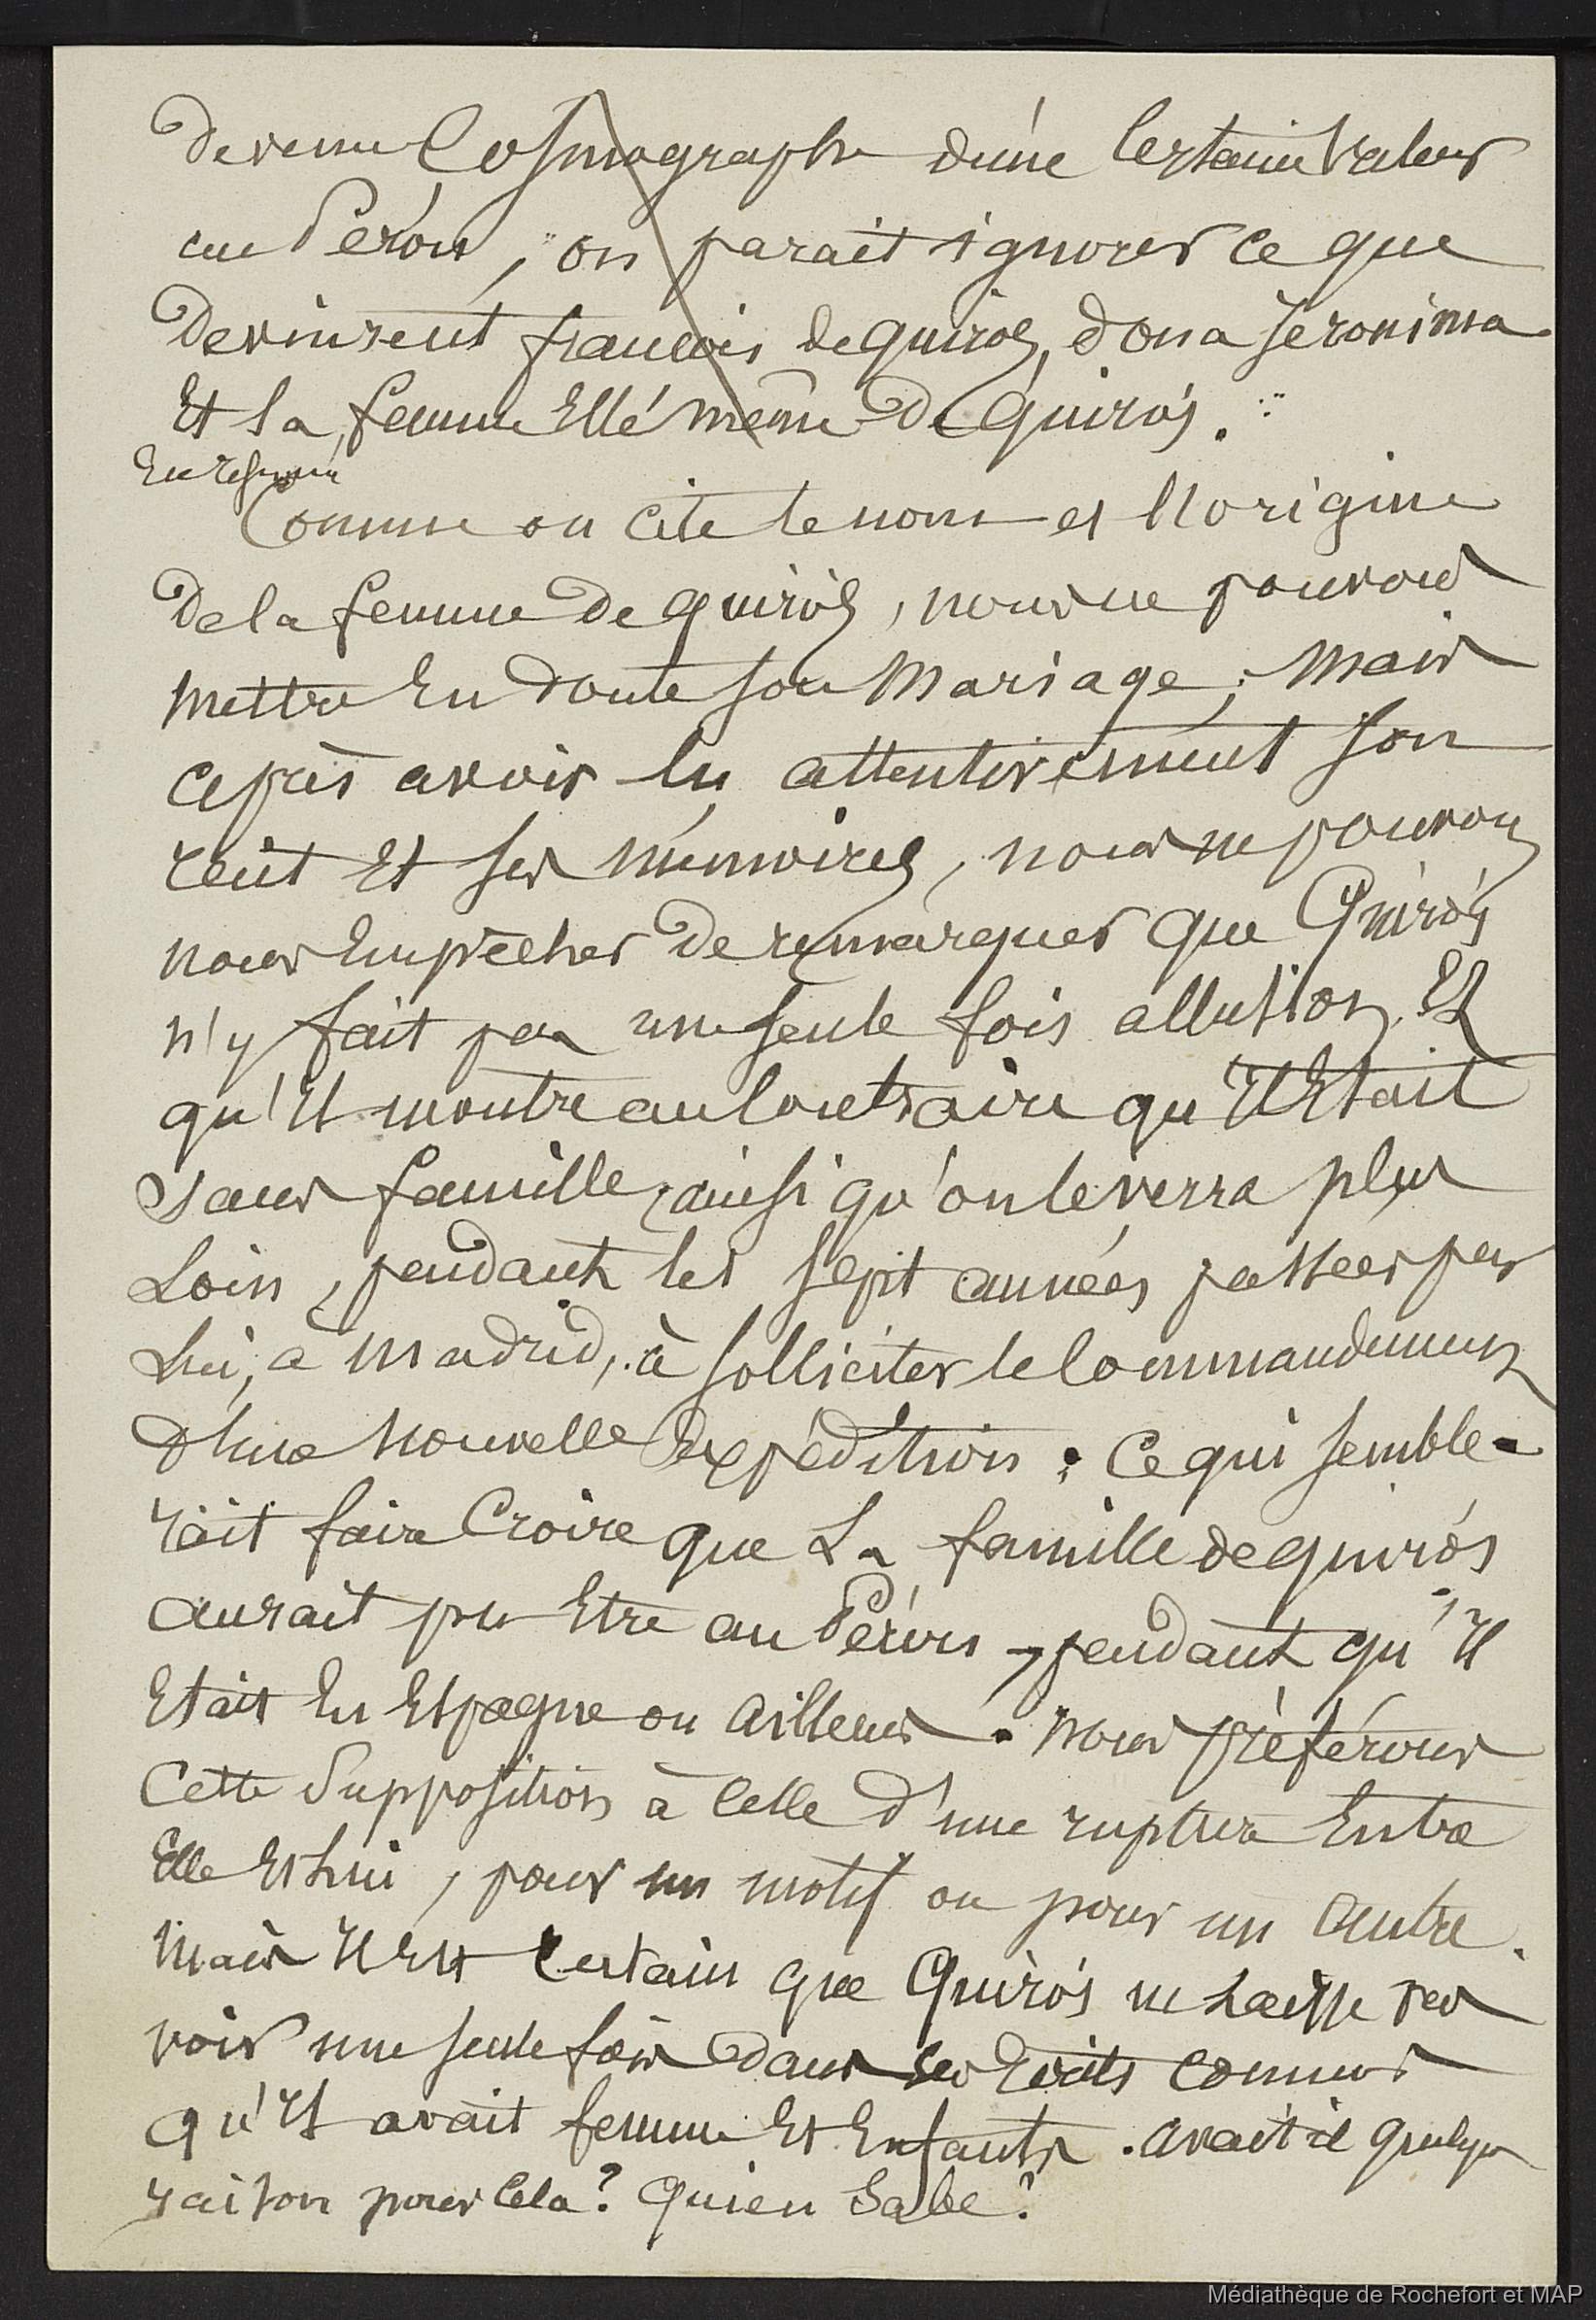 devenu Cosmographe d'une certaine valeur
au Pérou, on parait ignorer ce que
devinrent françois de quiros, dona Jeronima
Et la femme Elle même De Quirós.
En résumé
Comme on cite le nom et l'origine
De la femme De quirós, nous ne pouvons
mettre En doute son mariage; mais
après avoir lu attentivement son
récit Et ses mémoires, nous ne pouvons
nous Empêcher De remarquer que Quirós
n'y fait pas une seule fois allusion, Et
qu'Il montre au Contraire qu'Il Etait
sans famille, ainsi qu'on le verra plus
Loin, pendant les sept années passées par
Lui, à Madrid, à solliciter le Commandement
d'une nouvelle Expédition : Ce qui semble-
rait faire Croire que La famille de quirós
aurait pu Etre au Pérou, pendant qu'Il
Etait En Espagne ou Ailleurs. Nous préférons
Cette Supposition à Celle d'une rupture Entre
Elle Et Lui, pour un motif ou pour un Autre.
Mais Il Est Certain que Quirós ne Laisse pas
voir une seule fois dans ses Ecrits Connus
qu'Il avait femme Et Enfants. Avait il quelque
raison pour Cela? Quien Sabe?
Médiathèque de Rochefort et MAP